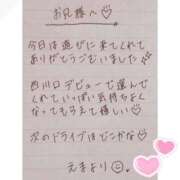 お兄様へ♡
今日は遊びに来てくれて
ありがとうございました♡
西川口デビューで選んで
くれていっぱい気持ちよく
なってもらえて嬉しい♡
次のドライブはどこかな♡
えまより☺